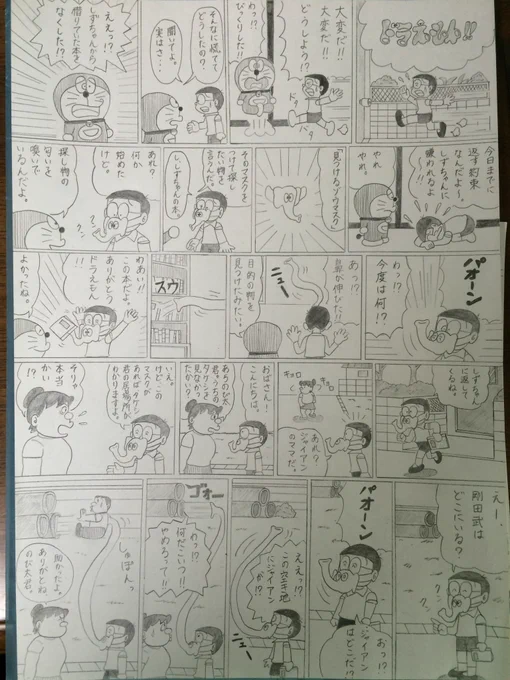 ドラえもん!!
大変だ!!
大変だ!!
どうしよう!?
ドタ
バタ
わっ!?
びっくりした!!
そんなに慌てて
どうしたの?
聞いてよ。
実はさ…
ええっ!?
しずちゃんから
借りていた本を
なくした!?
今日までに
返す約束
なんだよ〜。
しずちゃんに
嫌われるよ
やれ
やれ
「見つけるゾウマスク」
そのマスクを
つけて探し
たい物を
言うんだ。
し、しずちゃんの本。
あれ?
何か
始めた
けど。
クン
クン
探し物の
匂いを
嗅いで
いるんだよ。
パオーン
わっ!?
今度は何!?
あっ!?
鼻が伸びた!!
ニュー
目的の物を
見つけたみたい。
スウ
わあ!!
この本だよ。
ありがとう
ドラえもん
!!
よかったね。
しずちゃん
に返して
くるね。
キョロ
キョロ
あれ?
ジャイアン
のママだ。
おばさん!
こんにちは。
あらのび太
君。うちの
タケシを
見なかっ
たかい?
いえ。
けどこの
マスクが
あればタケシ
君の居場所が
わかりますよ。
そりゃ
本当
かい
!?
えー、
剛田武は
どこにいる?
クン
クン
パオーン
おっ!?
ジャイアン
はどこだ!?
ええっ!?
この空き地
にジャイアン
が!?
ニュー
ゴォー
わっ!?
何だこいつ!!
やめろって!!
しゅぽんっ
助かったよ。
ありがとね
のび太君。